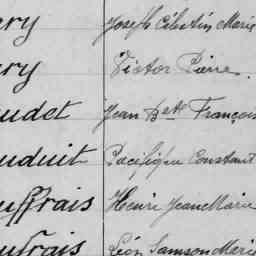 ery Joseph Célestin Marie
ery Victor Pierre
udet Jean Bte François
uduit Pacifique Constant
uffrais Henri Jean Marie
ufrais Léon Samson Marie